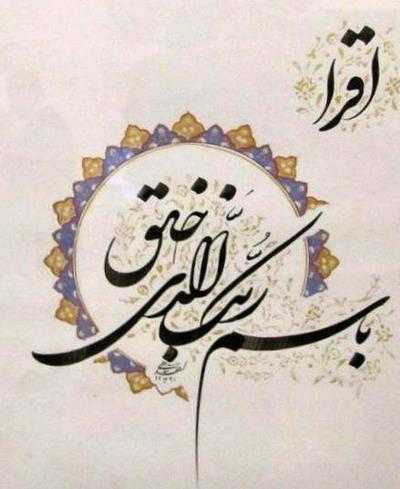 اقرا
باسم ربک الذی خلق